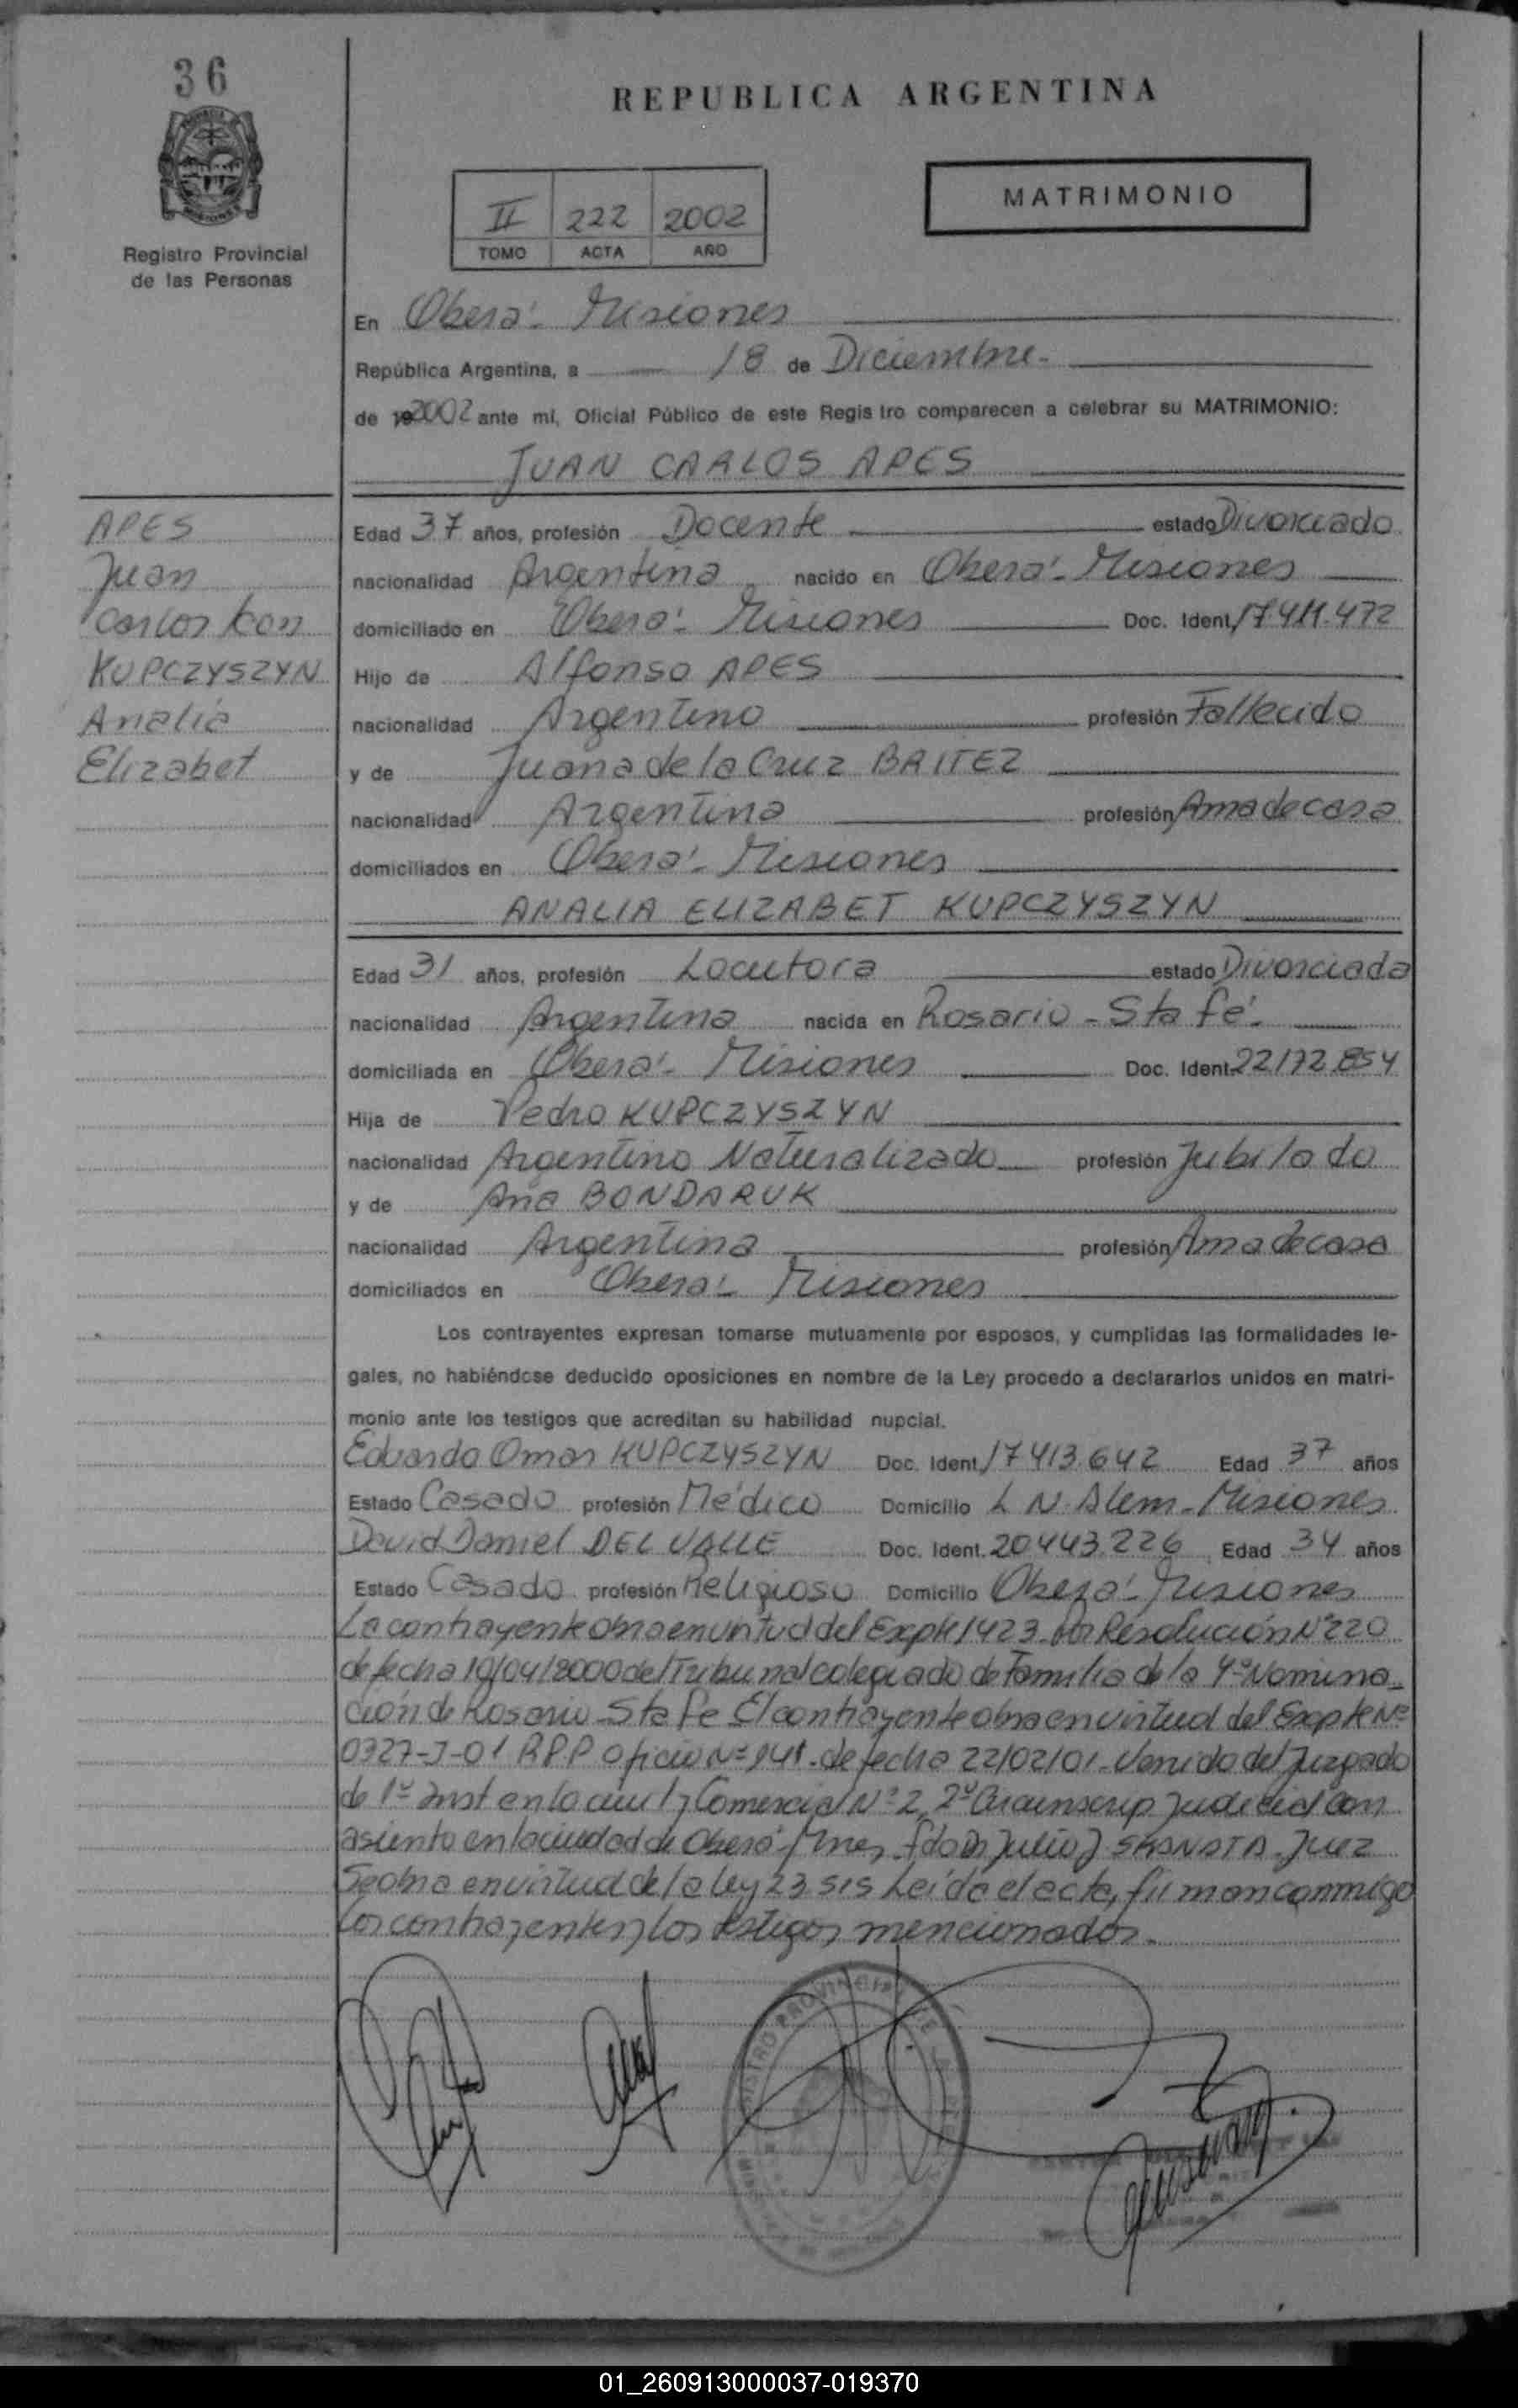 36
REPUBLICA ARGENTINA
MATRIMONIO
II 222 2002
TOMO ACTA AÑO
Registro Provincial
de las Personas
En Oberá - Misiones
República Argentina, a 18 de Diciembre -
de 192002 ante mi, Oficial Público de este Registro comparecen a celebrar su MATRIMONIO:
JUAN CARLOS APES
APES
Juan
Carlos con
KUPCZYSZYN
Analia
Elizabet
Edad 37 años, profesión Docente estado Divorciado
nacionalidad Argentina nacido en Oberá - Misiones
domiciliado en Oberá - Misiones Doc. Ident. 17.411.472
Hijo de Alfonso APES
nacionalidad Argentino profesión Fallecido
y de Juana de la Cruz BRITEZ
nacionalidad Argentina profesión Ama de casa
domiciliados en Oberá - Misiones
ANALIA ELIZABET KUPCZYSZYN
Edad 31 años, profesión Locutora estado Divorciada
nacionalidad Argentina nacida en Rosario - Sta fé -
domiciliada en Oberá - Misiones Doc. Ident. 22172.854
Hija de Pedro KUPCZYSZYN
nacionalidad Argentino Naturalizado profesión Jubilado
y de Ana BONDARUK
nacionalidad Argentina profesión Ama de casa
domiciliados en Oberá - Misiones
Los contrayentes expresan tomarse mutuamente por esposos, y cumplidas las formalidades le-
gales, no habiéndose deducido oposiciones en nombre de la Ley procedo a declararlos unidos en matri-
monio ante los testigos que acreditan su habilidad nupcial.
Eduardo Omar KUPCZYSZYN Doc. Ident. 17413.642 Edad 37 años
Estado Casado profesión Médico Domicilio L N. Alem - Misiones
David Daniel DEL VALLE Doc. Ident. 20443.226 Edad 34 años
Estado Casado profesión Religioso Domicilio Oberá - Misiones
La contrayente obra en virtud del Expte 1423 - Por Resolución Nº 220
de fecha 19/04/2000 del Tribunal colegiado de Familia de la 4º Nomina-
ción de Rosario - Sta Fe El contrayente obra en virtud del Expte Nº
0327-J-01 R.P.P Oficio Nº 141 - de fecha 22/02/01 - Venido del Juzgado
de 1º Inst en lo civil y Comercial Nº 2, 2º Circunscrip Judicial con
asiento en la ciudad de Oberá - Mnes - fdo Dr Julio J SKANATA - Juez
Se obra en virtud de la ley 23.515 Leída el acta, firman conmigo
los contrayentes y los testigos mencionados.
01_260913000037-019370